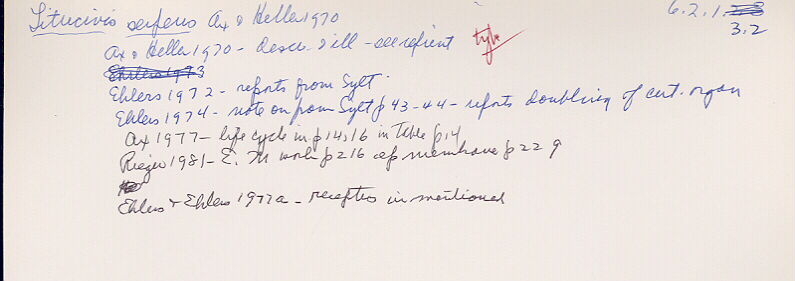 Litucivis serpens Ax & Heller 1970
6.2.1.
3.2
Ax & Heller 1970 - descr. & ill - see reprint
type
Ehlers 1973
Ehlers 1972 - reports from Sylt
Ehlers 1974 - note on from Sylt p 43-44 - reports doubling of cut. organ
Ax 1977 - life cycle in p 14, 16 in Table p. 14
Rieger 1981 - E. M work p 216 of membrane p 229
Ehlers & Ehlers 1977a - receptor in mentioned